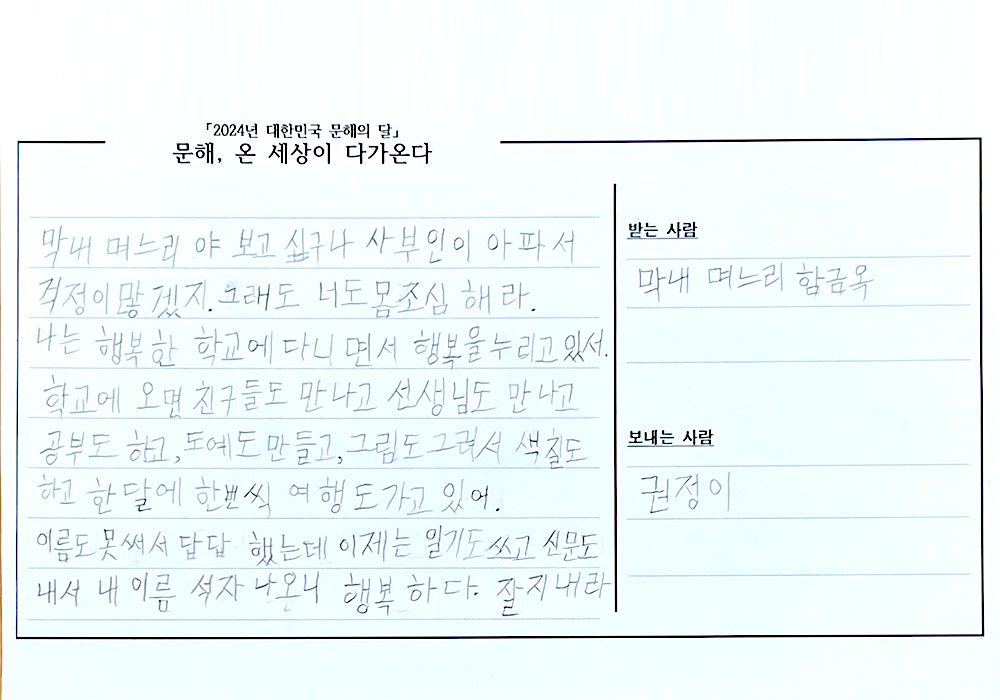 「2024년 대한민국 문해의 달」
문해, 온 세상이 다가온다
막내 며느리 야 보고 싶구나 사부인이 아파서
걱정이 많겠지. 그래도 너도 몸조심 해라.
나는 행복한 학교에 다니면서 행복을 누리고 있서.
학교에 오면 친구들도 만나고 선생님도 만나고
공부도 하고, 도예도 만들고, 그림도 그려서 색칠도
하고 한달에 한번씩 여행도 가고 있어.
이름도 못써서 답답 했는데 이제는 일기도 쓰고 신문도
내서 내 이름 석자 나온니 행복 하다. 잘지내라
받는 사람
막내 며느리 함금옥
보내는 사람
권정이